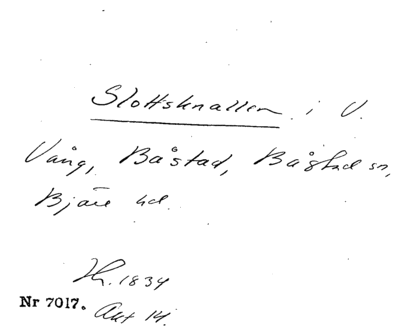 Slottsknallen i V.
Vång, Båstad, Båstad sn,
Bjäre hd.
Nr 7017.
1834
Akt 14.